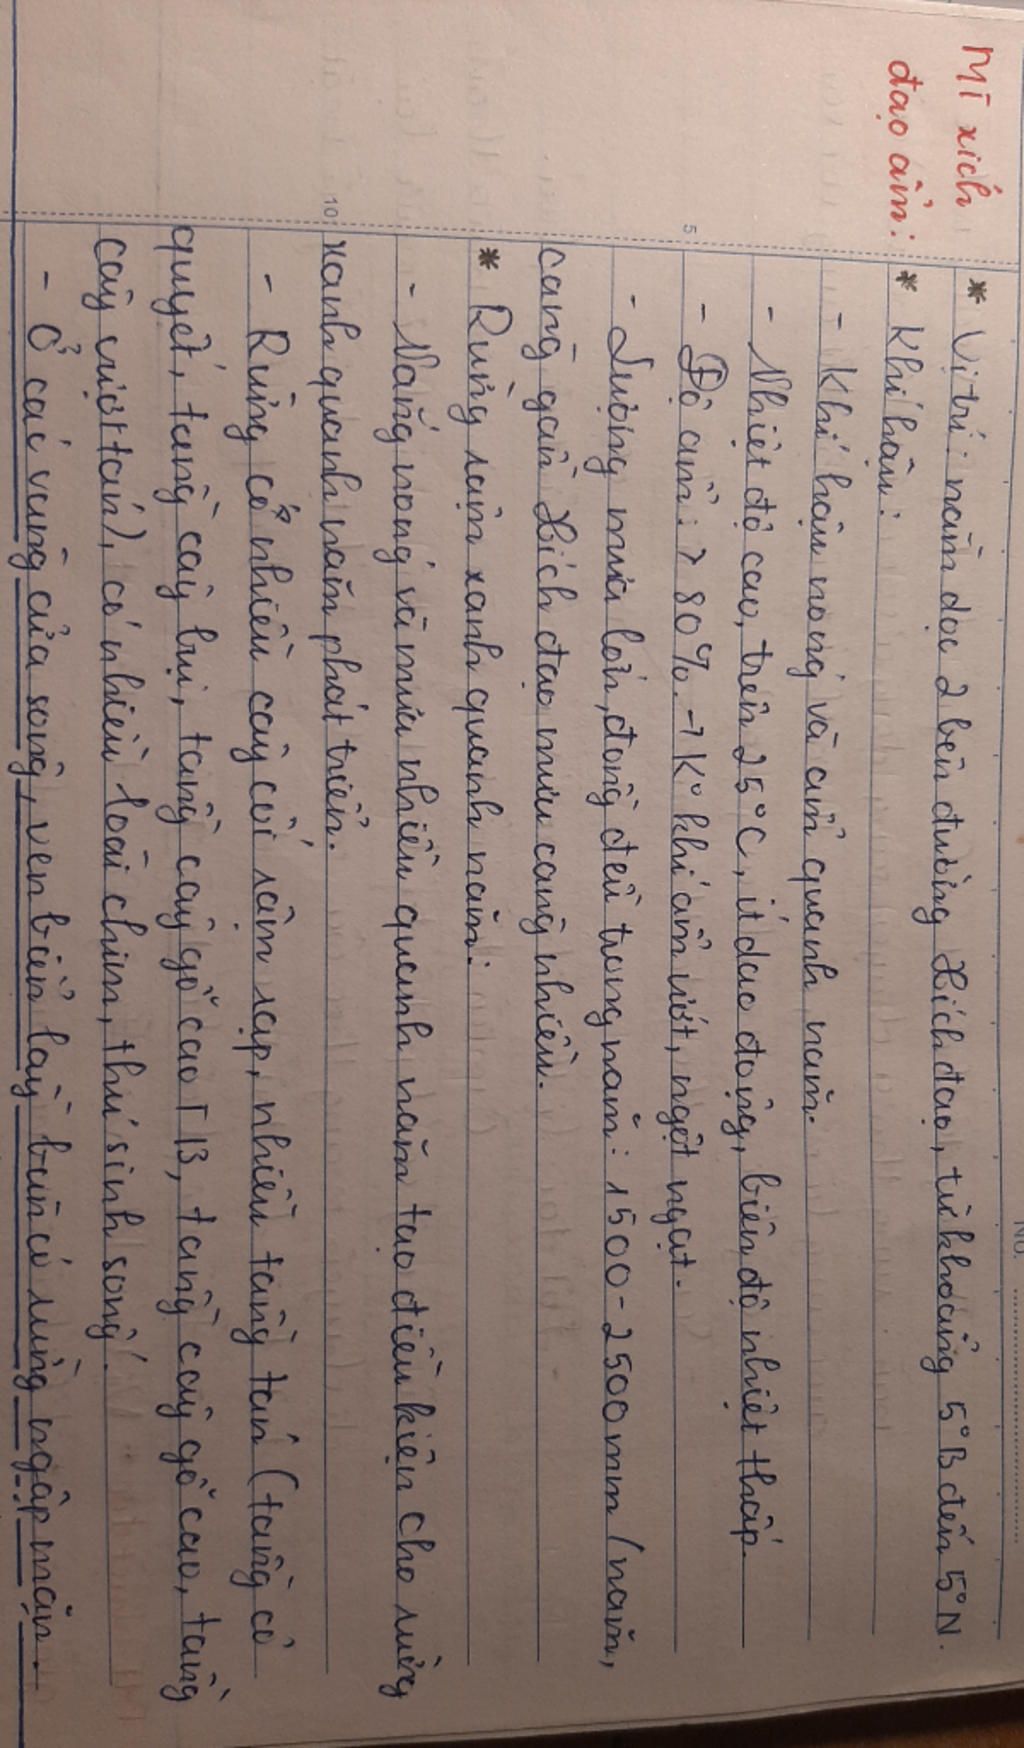 MT xích
đạo ẩm:
* Vị trí: nằm dọc 2 bên đường Xích đạo, từ khoảng 5°B đến 5°N.
* Khí hậu:
- Khí hậu nóng và ẩm quanh năm.
- Nhiệt độ cao, trên 25°C, ít dao động, biên độ nhiệt thấp.
5
- Độ ẩm: > 80% → K° khí ẩm ướt, ngột ngạt.
- Lượng mưa lớn, đồng đều trong năm: 1500-2500mm/năm,
càng gần Xích đạo mưa càng nhiều.
* Rừng rậm xanh quanh năm:
- Nắng nóng và mưa nhiều quanh năm tạo điều kiện cho rừng
10
xanh quanh năm phát triển.
- Rừng có nhiều cây cối rậm rạp, nhiều tầng tán (tầng cỏ
quyết, tầng cây bụi, tầng cây gỗ cao TB, tầng cây gỗ cao, tầng
cây vượt tán), có nhiều loài chim, thú sinh sống.
- Ở các vùng cửa sông, ven biển lầy bùn có rừng ngập mặn.
No.